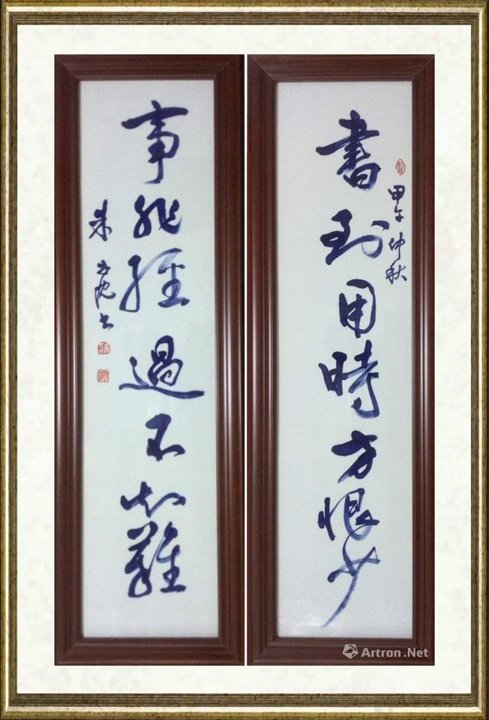 書到用時方恨少
甲午仲秋
事非經過不知難
朱
Artron.Net